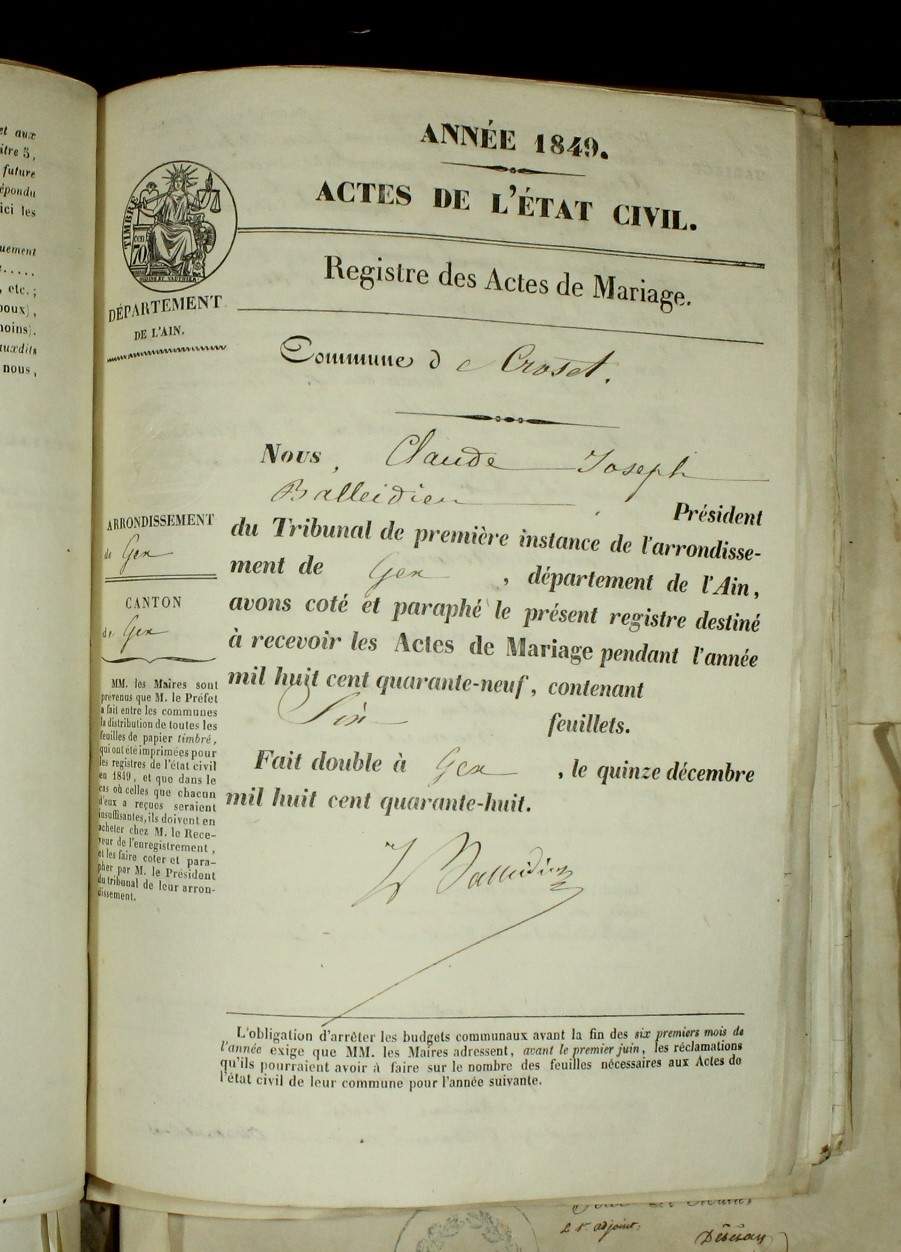 et aux
itre 5,
future
épondu
ici les
uement
etc. ;
poux),
moins).
auxdits
nous,
ANNÉE 1849.
ACTES DE L'ÉTAT CIVIL.
TIMBRE
70
Registre des Actes de Mariage.
DÉPARTEMENT
DE L'AIN.
Commune d e Croset.
Nous, Claude Joseph
Balleidier, Président
du Tribunal de première instance de l'arrondisse-
ment de Gex, département de l'Ain,
avons coté et paraphé le présent registre destiné
à recevoir les Actes de Mariage pendant l'année
mil huit cent quarante-neuf, contenant
Six feuillets.
Fait double à Gex, le quinze décembre
mil huit cent quarante-huit.
Balleidier
ARRONDISSEMENT
de Gex
CANTON
de Gex
MM. les Maires sont
prévenus que M. le Préfet
a fait entre les communes
la distribution de toutes les
feuilles de papier timbré,
qui ont été imprimées pour
les registres de l'état civil
en 1849, et que dans le
cas où celles que chacun
d'eux a reçues seraient
insuffisantes, ils doivent en
acheter chez M. le Rece-
veur de l'enregistrement,
et les faire coter et para-
pher par M. le Président
du tribunal de leur arron-
dissement.
L'obligation d'arrêter les budgets communaux avant la fin des six premiers mois de
l'année exige que MM. les Maires adressent, avant le premier juin, les réclamations
qu'ils pourraient avoir à faire sur le nombre des feuilles nécessaires aux Actes de
l'état civil de leur commune pour l'année suivante.
adjoint